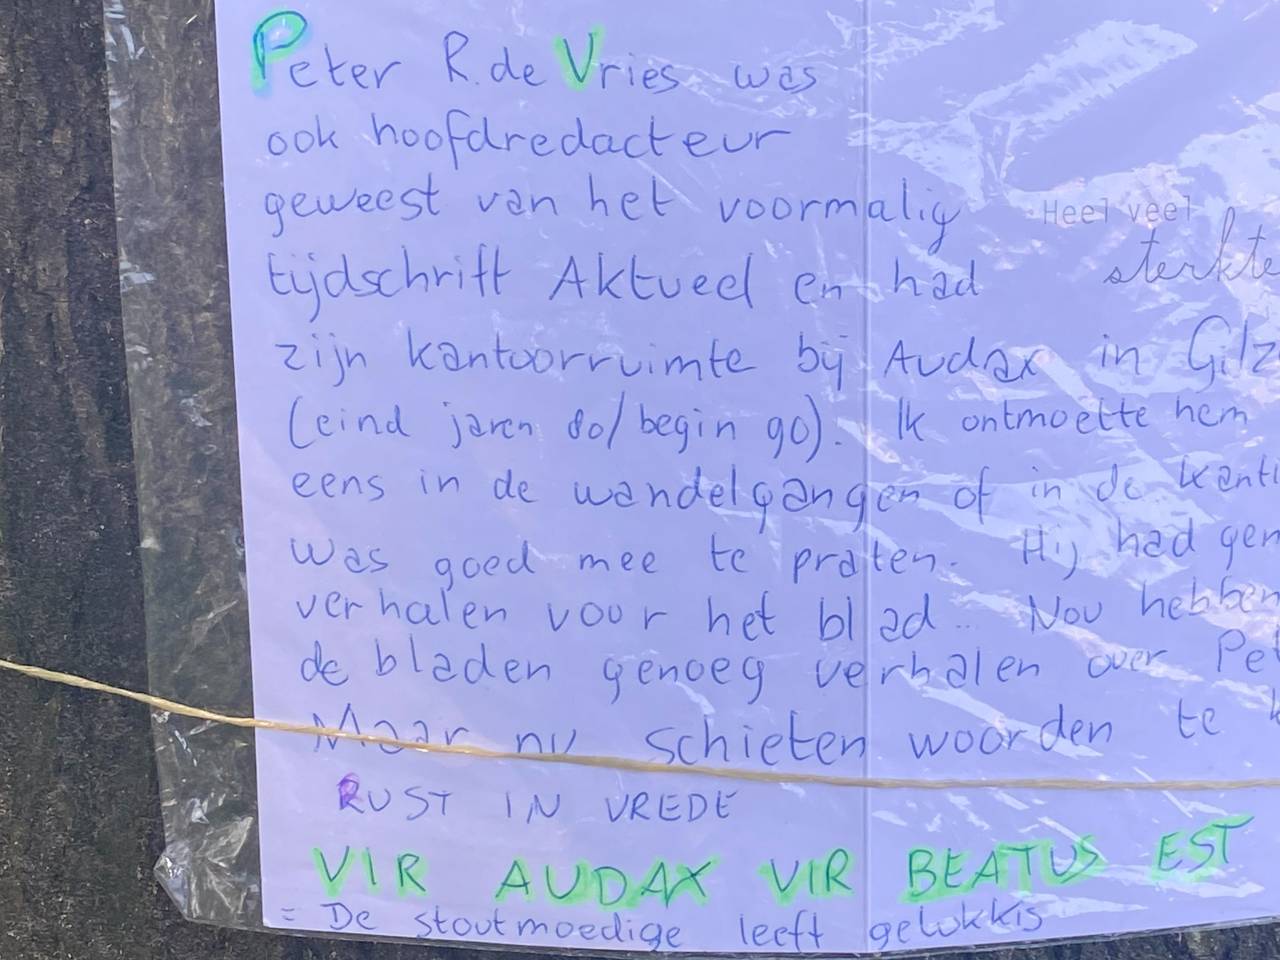 Peter R. de Vries was
ook hoofdredacteur
geweest van het voormalig
Heel veel
sterkte
tijdschrift Aktueel en had
zijn kantoorruimte bij Audax in Gilz
(eind jaren 80/begin 90). Ik ontmoette hem
eens in de wandelgangen of in de kanti
was goed mee te praten. Hij had gen
verhalen voor het blad.. Nou hebben
de bladen genoeg verhalen over Pet
Maar nu schieten woorden te k
RUST IN VREDE
VIR AUDAX VIR BEATUS EST
= De stoutmoedige leeft gelukkig